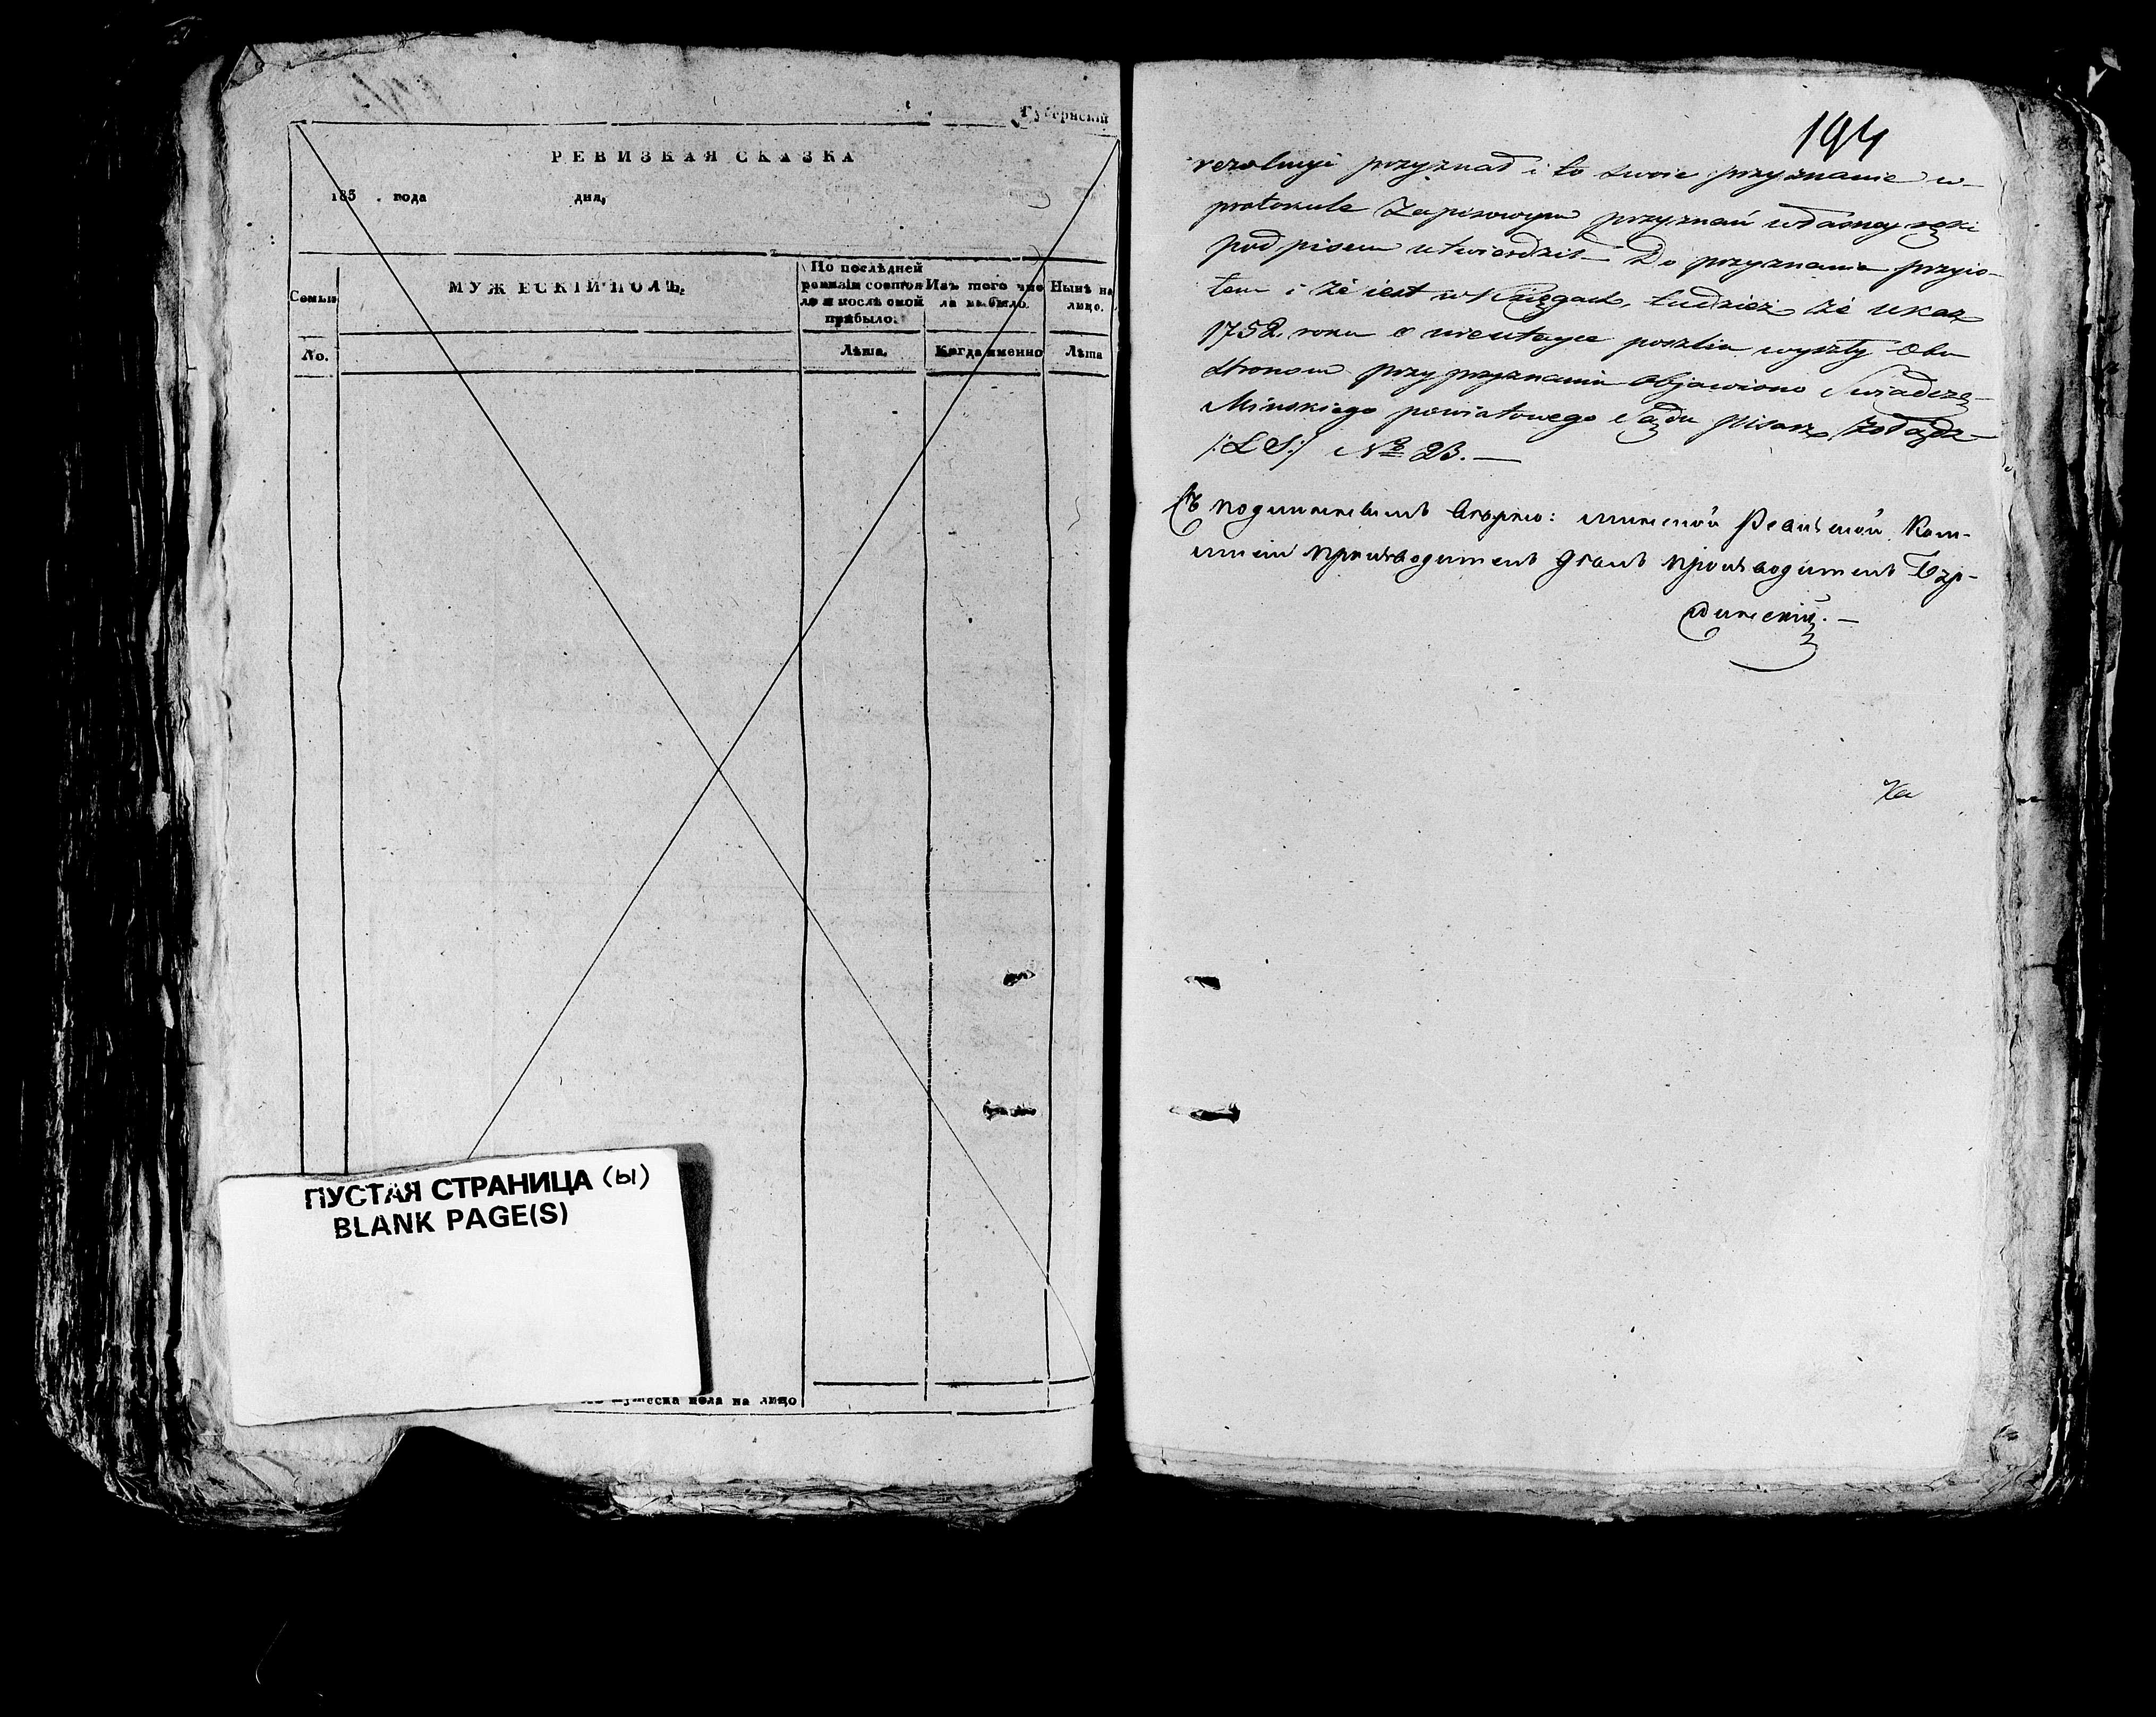 Губернскій
РЕВИЗКАЯ СКАЗКА
185 . года дня,
Семьи
МУЖЕСКІЙ ПОЛЪ,
По послѣдней
ревизіи состоя
ло и послѣ оной
прибыло.
Изъ того чис
ла выбыло.
Нынѣ на
лицо.
No.
Лѣта.
Когда именно
Лѣта
мужеска пола на лицо
ПУСТАЯ СТРАНИЦА (ы)
BLANK PAGE(S)
194
rezolucyi przyznał i to swoie przyznanie w-
protokule Zapisowym przyznań własney ręki
podpisem utwierdził — Do przyznania przyio-
tem i że iest w Księgach, tudzież że ukaz
1752. roku o nieutayce poszlin wyszły Obu
stronom przy przyznaniu objawiono Swiadczę —
Minskiego powiatowego Sądu Pisarz
/:LS:/ № 23. —
Съ подлиннымъ вѣрно: Ком-
мисіи производитель дѣлъ производитель
Ка